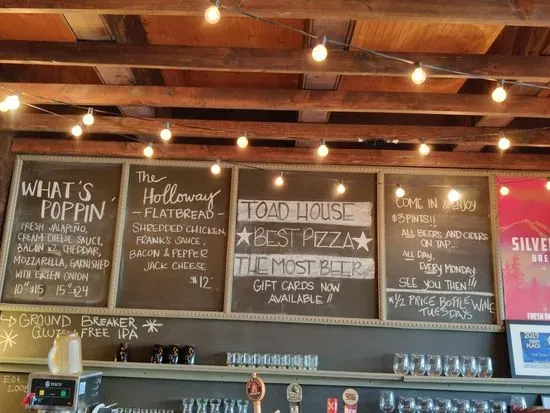 WHAT'S
POPPIN'
FRESH JALAPEÑO,
CREAM CHEESE SAUCE,
BACON x2, CHEDDAR,
MOZZARELLA, GARNISHED
WITH GREEN ONION
10" $15 15" $24
The
Holloway
-FLATBREAD-
SHREDDED CHICKEN,
FRANK'S SAUCE,
BACON & PEPPER
JACK CHEESE
$12.
TOAD HOUSE
★BEST PIZZA★
THE MOST BEER
GIFT CARDS NOW
AVAILABLE!!
COME IN & ENJOY
$3 PINTS!!
ALL BEERS AND CIDERS
ON TAP...
ALL DAY,
EVERY MONDAY
SEE YOU THEN!!!
*1/2 PRICE BOTTLE WINE
TUESDAYS
SILVER
→ GROUND BREAKER
GLUTEN FREE IPA
EST